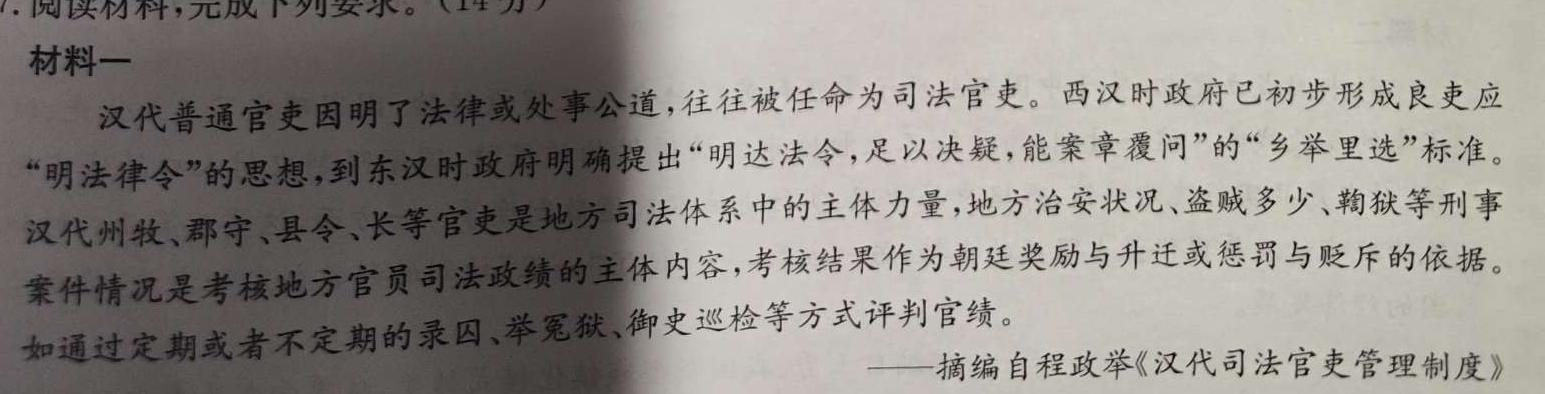 7.阅读材料,完成下列要求。(14分)
材料一
汉代普通官吏因明了法律或处事公道,往往被任命为司法官吏。西汉时政府已初步形成良吏应
“明法律令”的思想,到东汉时政府明确提出“明达法令,足以决疑,能案章覆问”的“乡举里选”标准。
汉代州牧、郡守、县令、长等官吏是地方司法体系中的主体力量,地方治安状况、盗贼多少、鞫狱等刑事
案件情况是考核地方官员司法政绩的主体内容,考核结果作为朝廷奖励与升迁或惩罚与贬斥的依据。
如通过定期或者不定期的录囚、举冤狱、御史巡检等方式评判官绩。
——摘编自程政举《汉代司法官吏管理制度》